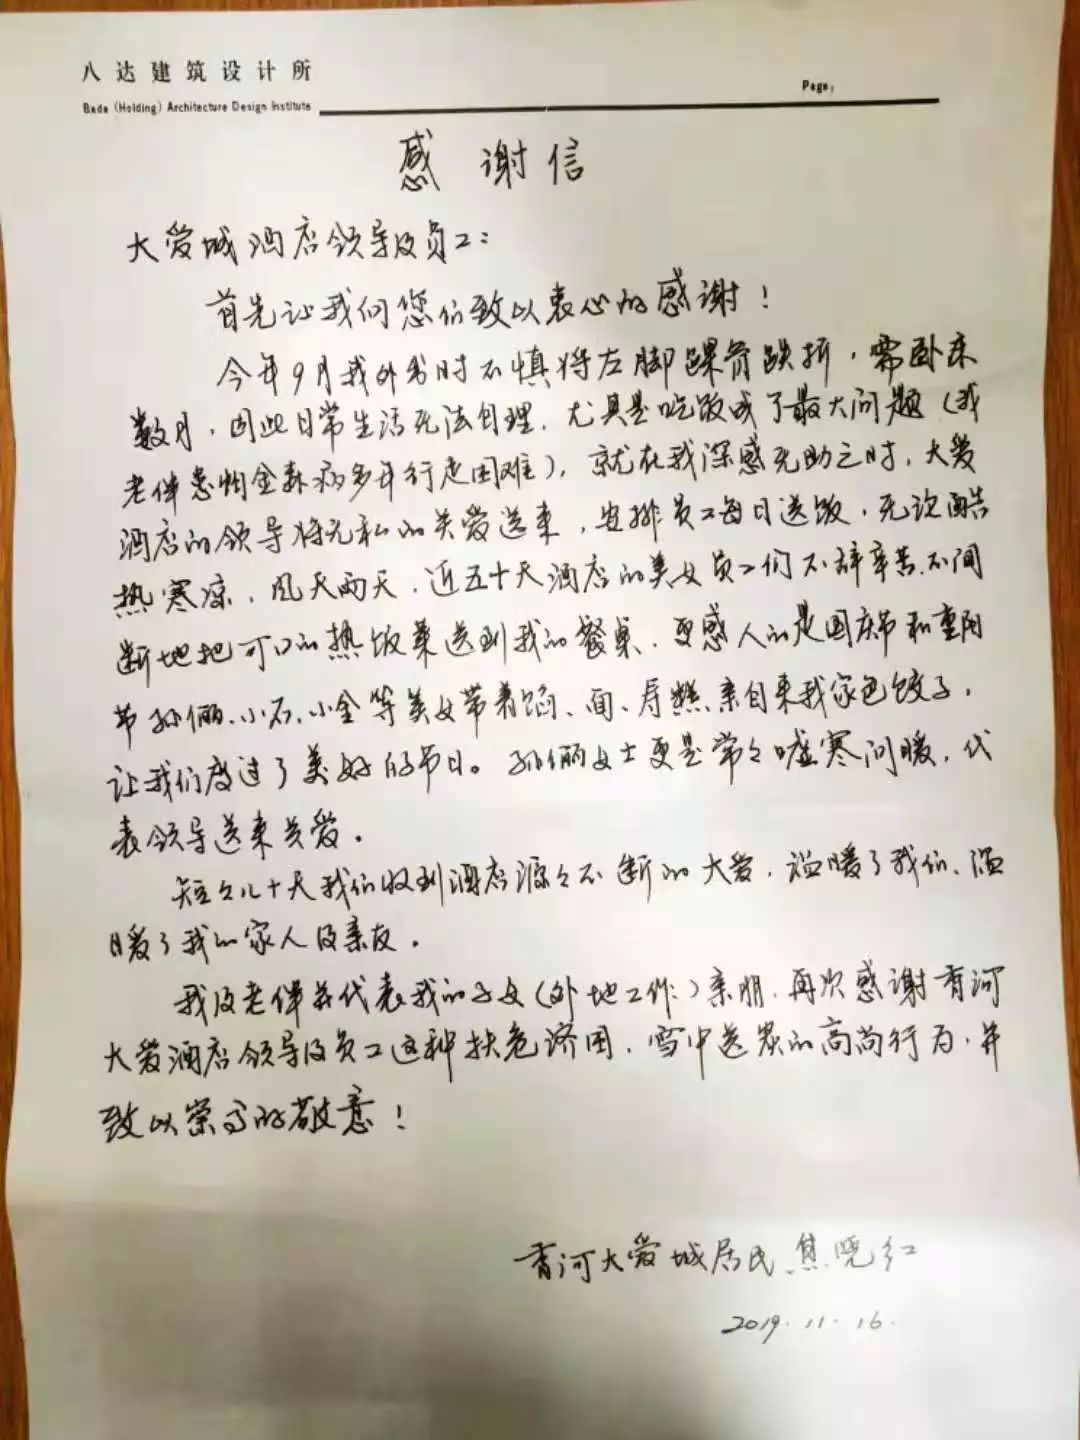 八达建筑设计所
Bada (Holding) Architecture Design Institute
Page:
感谢信
大爱城酒店领导及员工：
首先让我们向您们致以衷心的感谢！
今年9月我外出时不慎将左脚踝骨跌折，需卧床
数月，因此日常生活无法自理，尤其是吃饭成了最大问题（我
老伴患帕金森病多年行走困难），就在我深感无助之时，大爱
酒店的领导将无私的关爱送来，安排员工每日送饭，无论酷
热寒凉，风天雨天，近五十天酒店的美女员工们不辞辛苦、不间
断地把可口的热饭菜送到我的餐桌，更感人的是国庆节和重阳
节孙俪、小石、小金等美女带着馅、面、寿糕亲自来我家包饺子，
让我们度过了美好的节日。孙俪女士更是常々嘘寒问暖，代
表领导送来关爱。
短々几十天我们收到酒店源々不断的大爱，温暖了我们、温
暖了我的家人及亲友。
我及老伴并代表我的子女（外地工作）亲朋，再次感谢香河
大爱酒店领导及员工这种扶危济困，雪中送炭的高尚行为，并
致以崇高的敬意！
香河大爱城居民 焦晓红
2019.11.16.